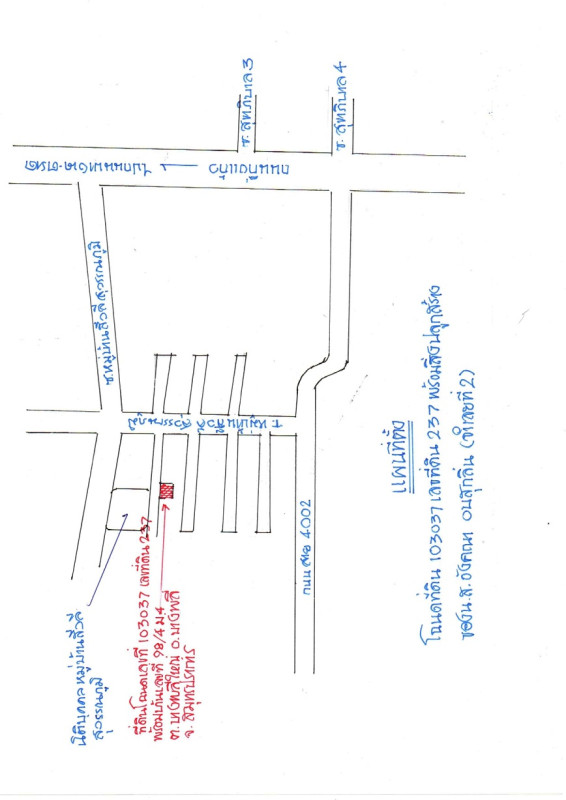 แผนที่ตั้ง
โฉนดที่ดิน 103037 เลขที่ดิน 237 พร้อมสิ่งปลูกสร้าง
ของ น.ส. อังคณา อบสุกลิ่น (จำเลยที่ 2)
ซ. สุขาภิบาล 3
ซ. สุขาภิบาล 4
ถนนกิ่งแก้ว
ไปถนนเทพา
ซ. หมู่บ้านสีวลีสุวรรณภูมิ
ซ. หมู่บ้าน สีวลี สุวรรณภูมิ
ถนน สาย 4002
นิติบุคคล หมู่บ้านสีวลี
สุวรรณภูมิ
ที่ดินโฉนดเลขที่ 103037 เลขที่ดิน 237
พร้อมบ้านเลขที่ 98/4 ม.4
ต. บางพลีใหญ่ อ. บางพลี
จ. สมุทรปราการ